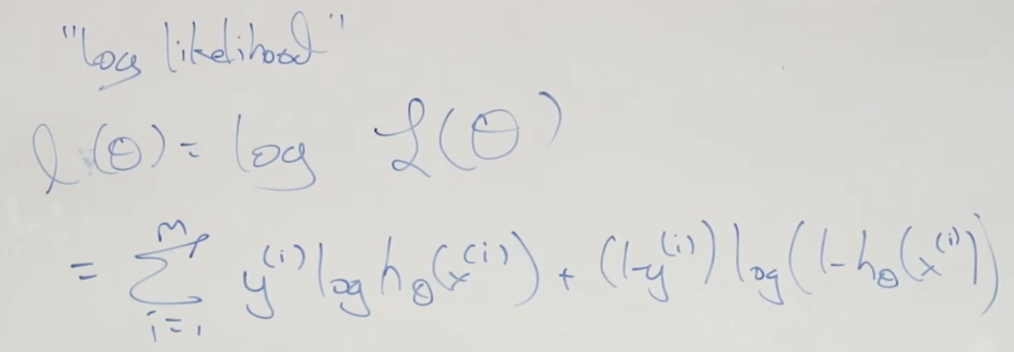 "log likelihood"
l(θ) = log ℒ(θ)
= ∑_{i=1}^{m} y^{(i)} log h_θ(x^{(i)}) + (1-y^{(i)}) log(1-h_θ(x^{(i)})